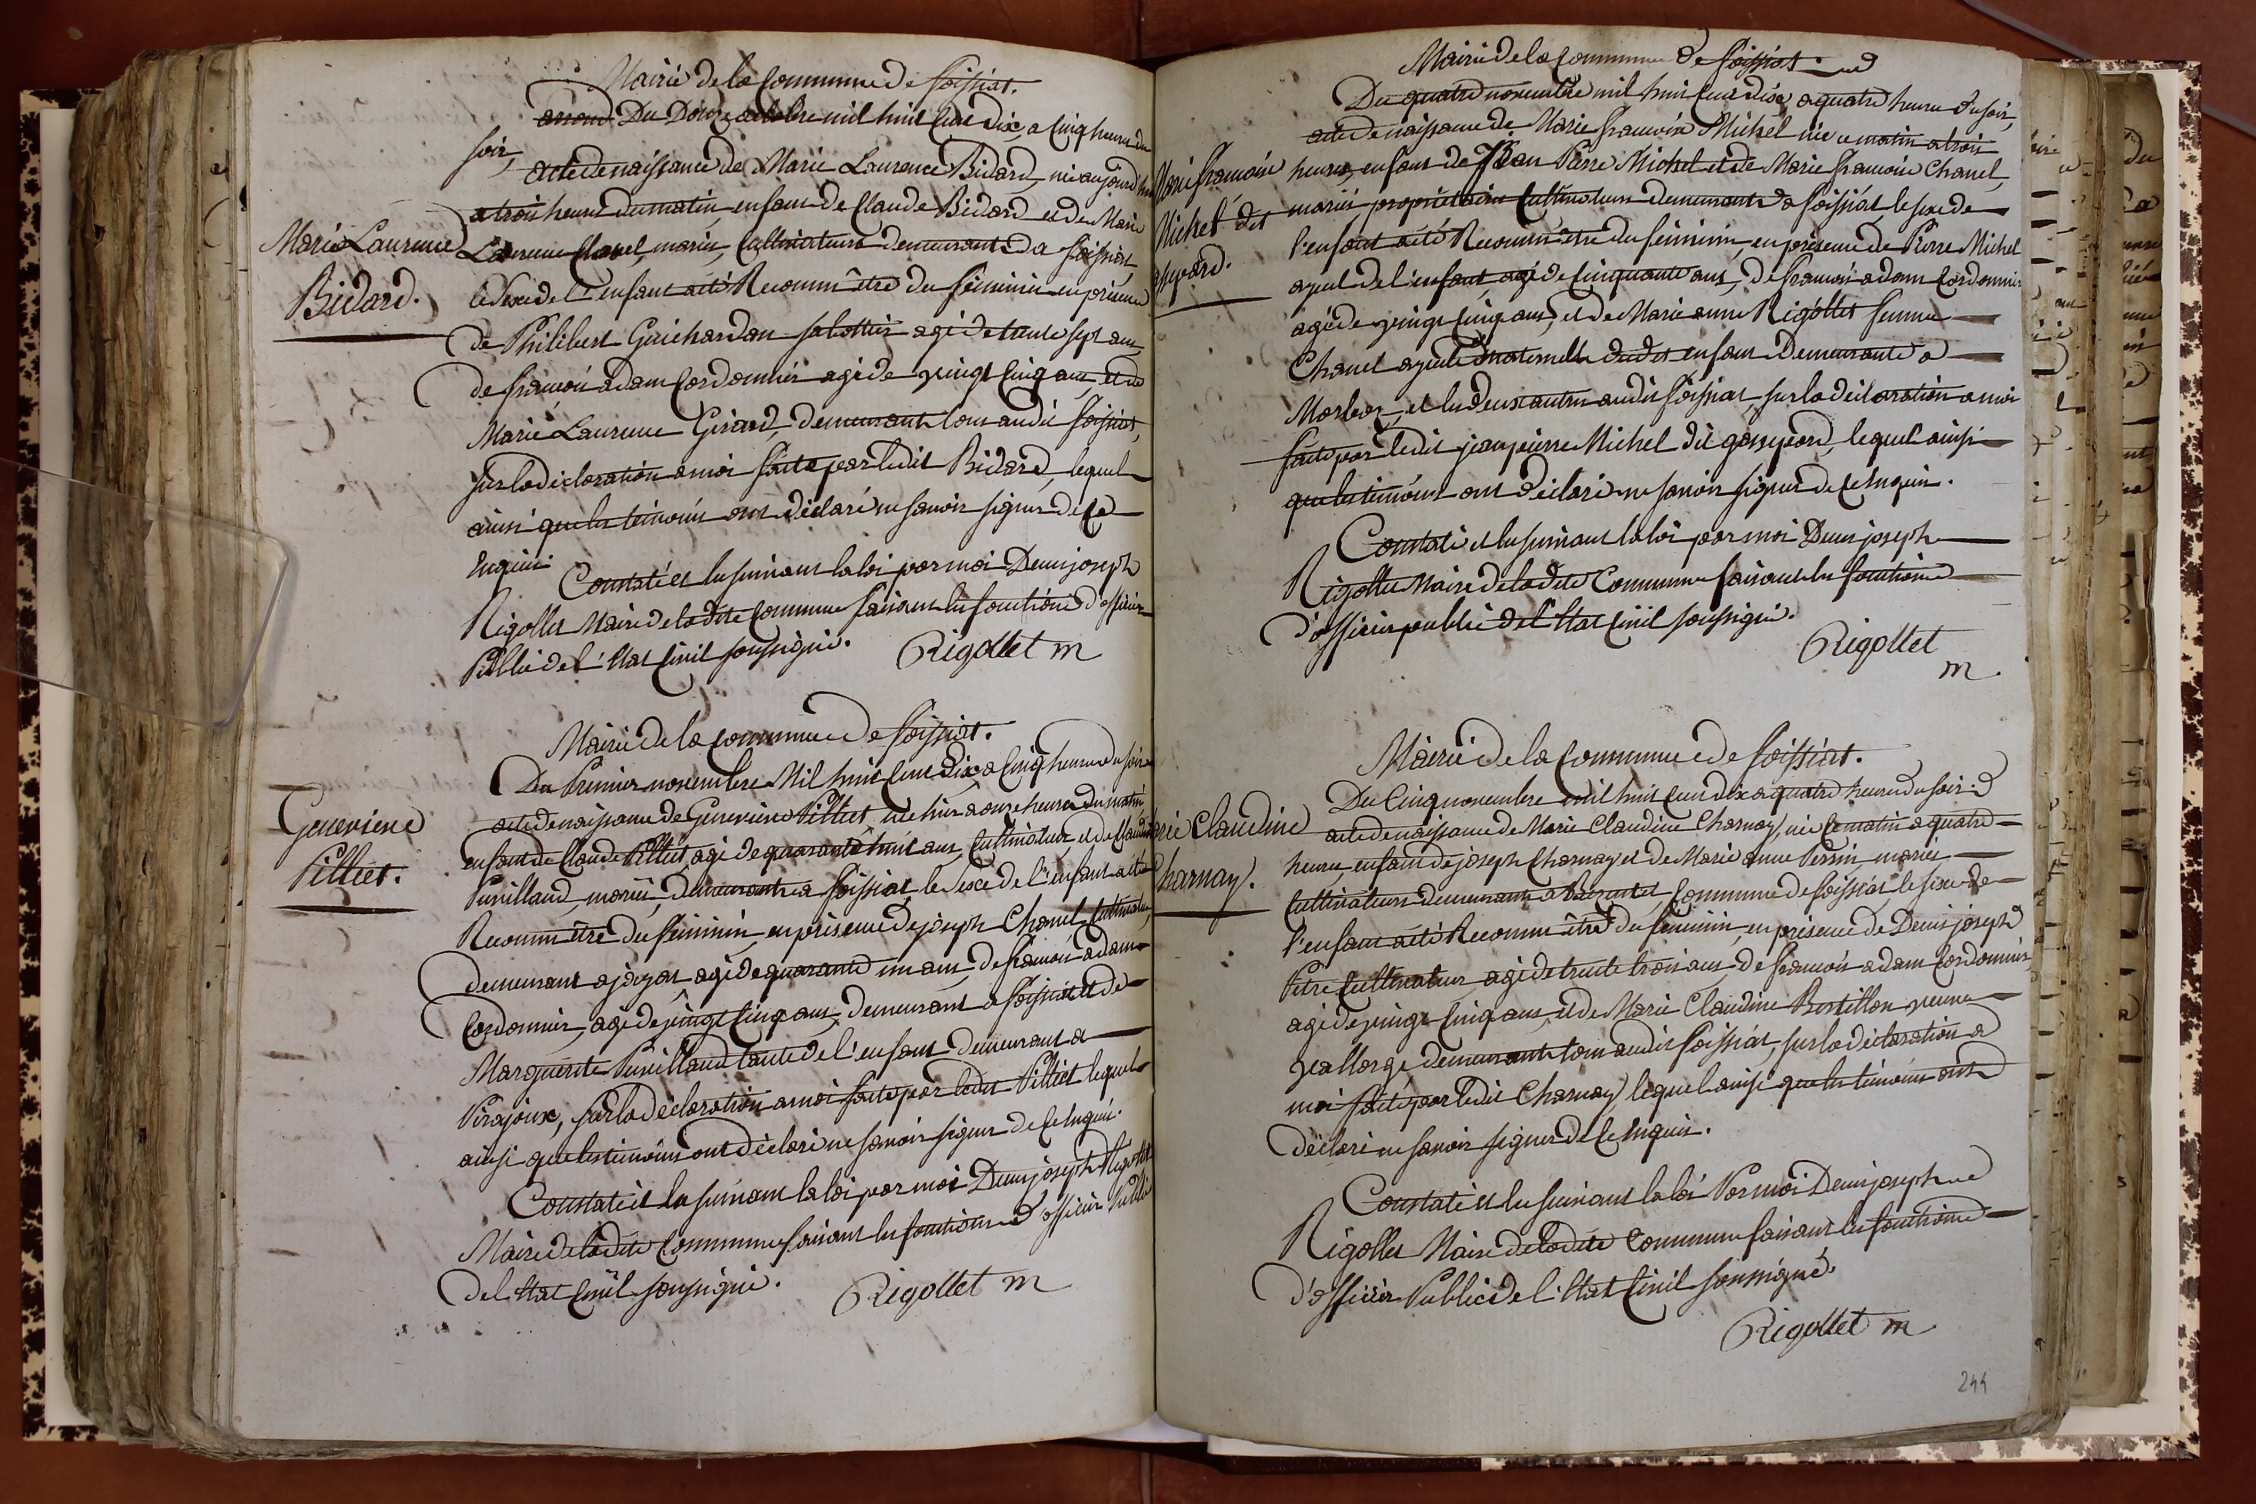 Mairie de la Commune de foissiat.
Du Douze octobre mil huit Cent Dix a Cinq heures du
soir,
acte de naissance de Marie Laurence Bidard, née aujourd'hui
a trois heures du matin, enfant de Claude Bidard et de Marie
Marie Laurence
Laurence Clavel, mariés, Cultivateurs demeurants a foissiat,
Bidard.
le sexe de l'enfant a été Reconnu être du féminin en présence
de Philibert Guichardan sabottier agé de trente sept ans,
de françois adam Cordonnier agé de vingt Cinq ans, et de
Marie Laurence Girard, demeurant tous audit foissiat,
sur la déclaration a moi faite par ledit Bidard, lequel
ainsi que les témoins ont déclaré ne savoir signer de Ce
Enquis.
Constaté et lu suivant la loi par moi Denis joseph
Rigollet Maire de la dite Commune faisant les fonctions d'officier
Public de l'Etat Civil soussigné.
Rigollet m
Mairie de la Commune de foissiat.
Du Premier novembre Mil huit Cent Dix a Cinq heures du soir
Genevieve
acte de naissance de Genevieve Pilliet née hier a onze heures du matin
enfant de Claude Pilliet agé de quarante huit ans, Cultivateur et de Claudine
Pilliet.
Puvilland, mariés, demeurants a foissiat, le sexe de l'enfant a été
Reconnu être du féminin, en présence de joseph Chanel Cultivateur,
demeurant a jayat, agé de quarante un ans, de françois adam
Cordonnier, agé de vingt Cinq ans, demeurant a foissiat et de
Marguerite Puvilland tante de l'enfant demeurant a
Pirajoux, sur la déclaration a moi faite par ledit Pilliet lequel
ainsi que les témoins ont déclaré ne savoir signer de Ce Enquis.
Constaté et lu suivant la loi par moi Denis joseph Rigollet
Maire de la dite Commune faisant les fonctions d'officier Public
de l'Etat Civil soussigné.
Rigollet m
Mairie de la Commune de foissiat.
Du quatre novembre mil huit Cent dix a quatre heures du soir,
acte de naissance de Marie françoise Michel née ce matin a trois
Marie françoise
heures, enfant de Jean Pierre Michel et de Marie françoise Chanel,
Michel dit
mariés propriétaires Cultivateurs demeurants a foissiat, le sexe de
l'enfant a été Reconnu être du féminin, en présence de Pierre Michel
ayeul de l'enfant, agé de Cinquante ans, de françois adam Cordonnier
agé de vingt Cinq ans, et de Marie anne Rigollet femme
Chanel ayeule maternelle dudit enfant Demeurante a
Marboz, et les deux autres audit foissiat, sur la déclaration a moi
faite par ledit jean pierre Michel dit gaspard, lequel ainsi
que les témoins ont déclaré ne savoir signer de Ce Enquis.
Constaté et lu suivant la loi par moi Denis joseph
Rigollet Maire de la dite Commune faisant les fonctions
d'officier public de l'Etat Civil soussigné.
Rigollet
m.
Mairie de la Commune de foissiat.
Du Cinq novembre mil huit Cent dix a quatre heures du soir.
Marie Claudine
acte de naissance de Marie Claudine Charnay, née Ce matin a quatre
heures, enfant de joseph Charnay et de Marie anne Perrin mariés
Charnay.
Cultivateurs demeurants a Commune de foissiat, le sexe de
l'enfant a été Reconnu être du féminin, en présence de Denis joseph
Pitre Cultivateur agé de trente trois ans, de françois adam Cordonnier,
agé de vingt Cinq ans, et de Marie Claudine veuve
demeurants tous audit foissiat, sur la déclaration a
moi faite par ledit Charnay, lequel ainsi que les témoins ont
déclaré ne savoir signer de Ce Enquis.
Constaté et lu suivant la loi Par moi Denis joseph
Rigollet Maire de la dite Commune faisant les fonctions
d'officier Public de l'Etat Civil soussigné.
Rigollet m
244